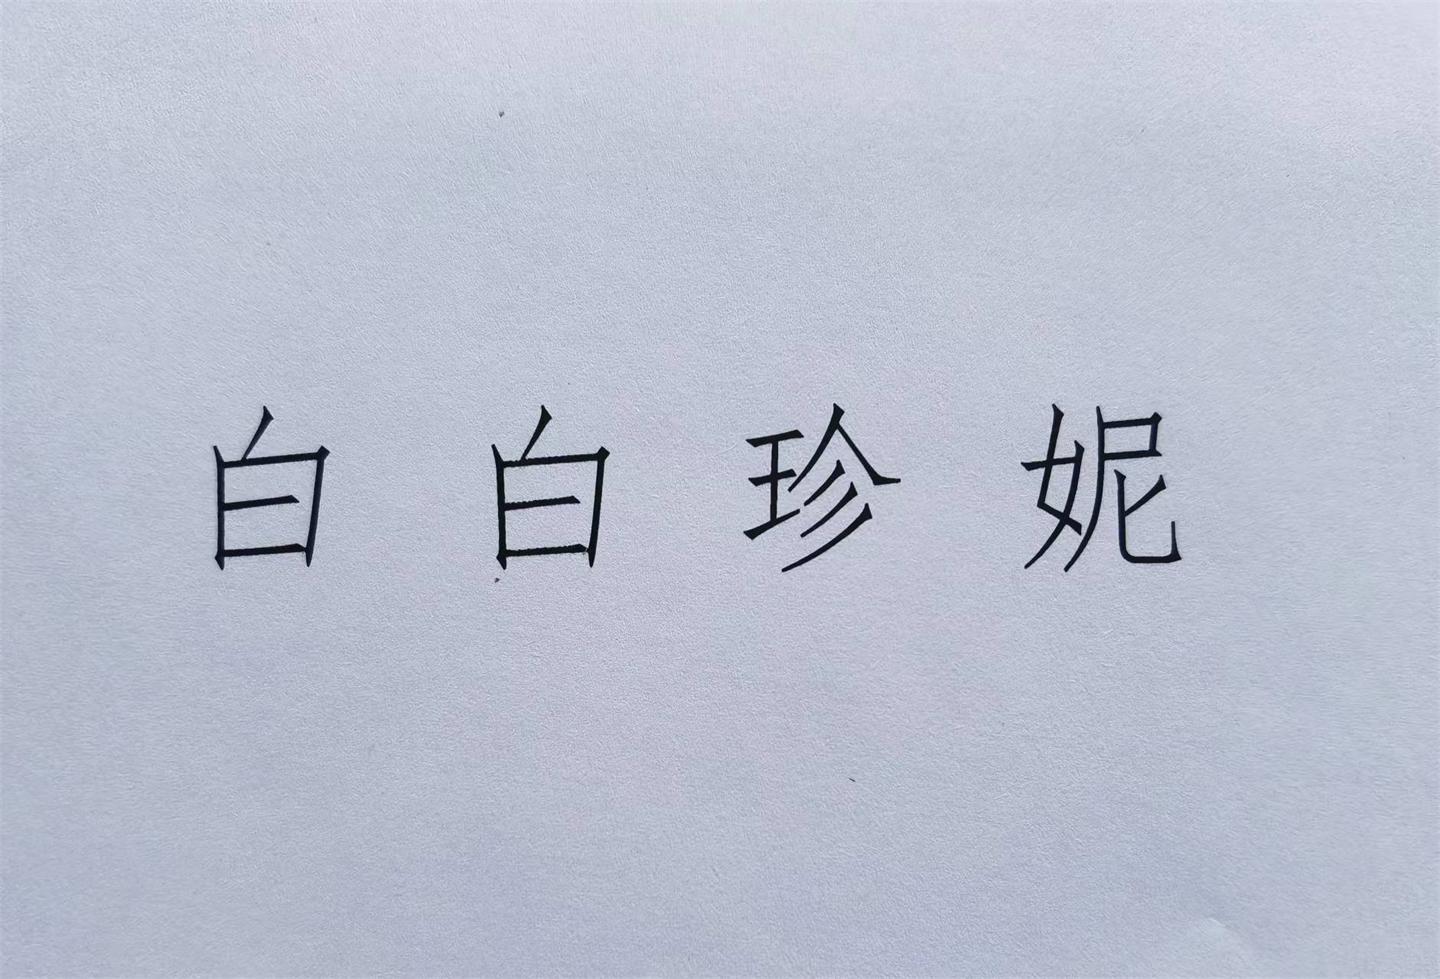 白白珍妮